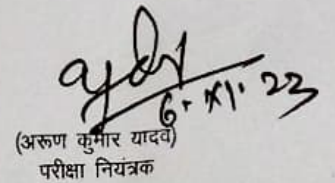 6.XI.23
(अरूण कुमार यादव)
परीक्षा नियंत्रक